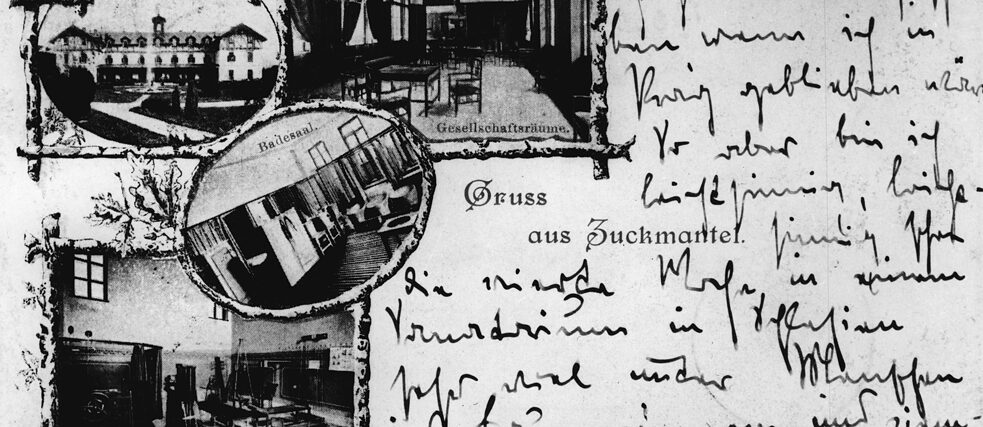 Badesaal.
Gesellschaftsräume.
Gruss
aus Zuckmantel.
ben wenn ich in
Prag geblieben wäre
So aber bin ich
leichtsinnig, leicht-
sinnig schon
die vierte Woche in einem
Sanatorium in Schlesien
sehr viel unter Menschen
und ziem-